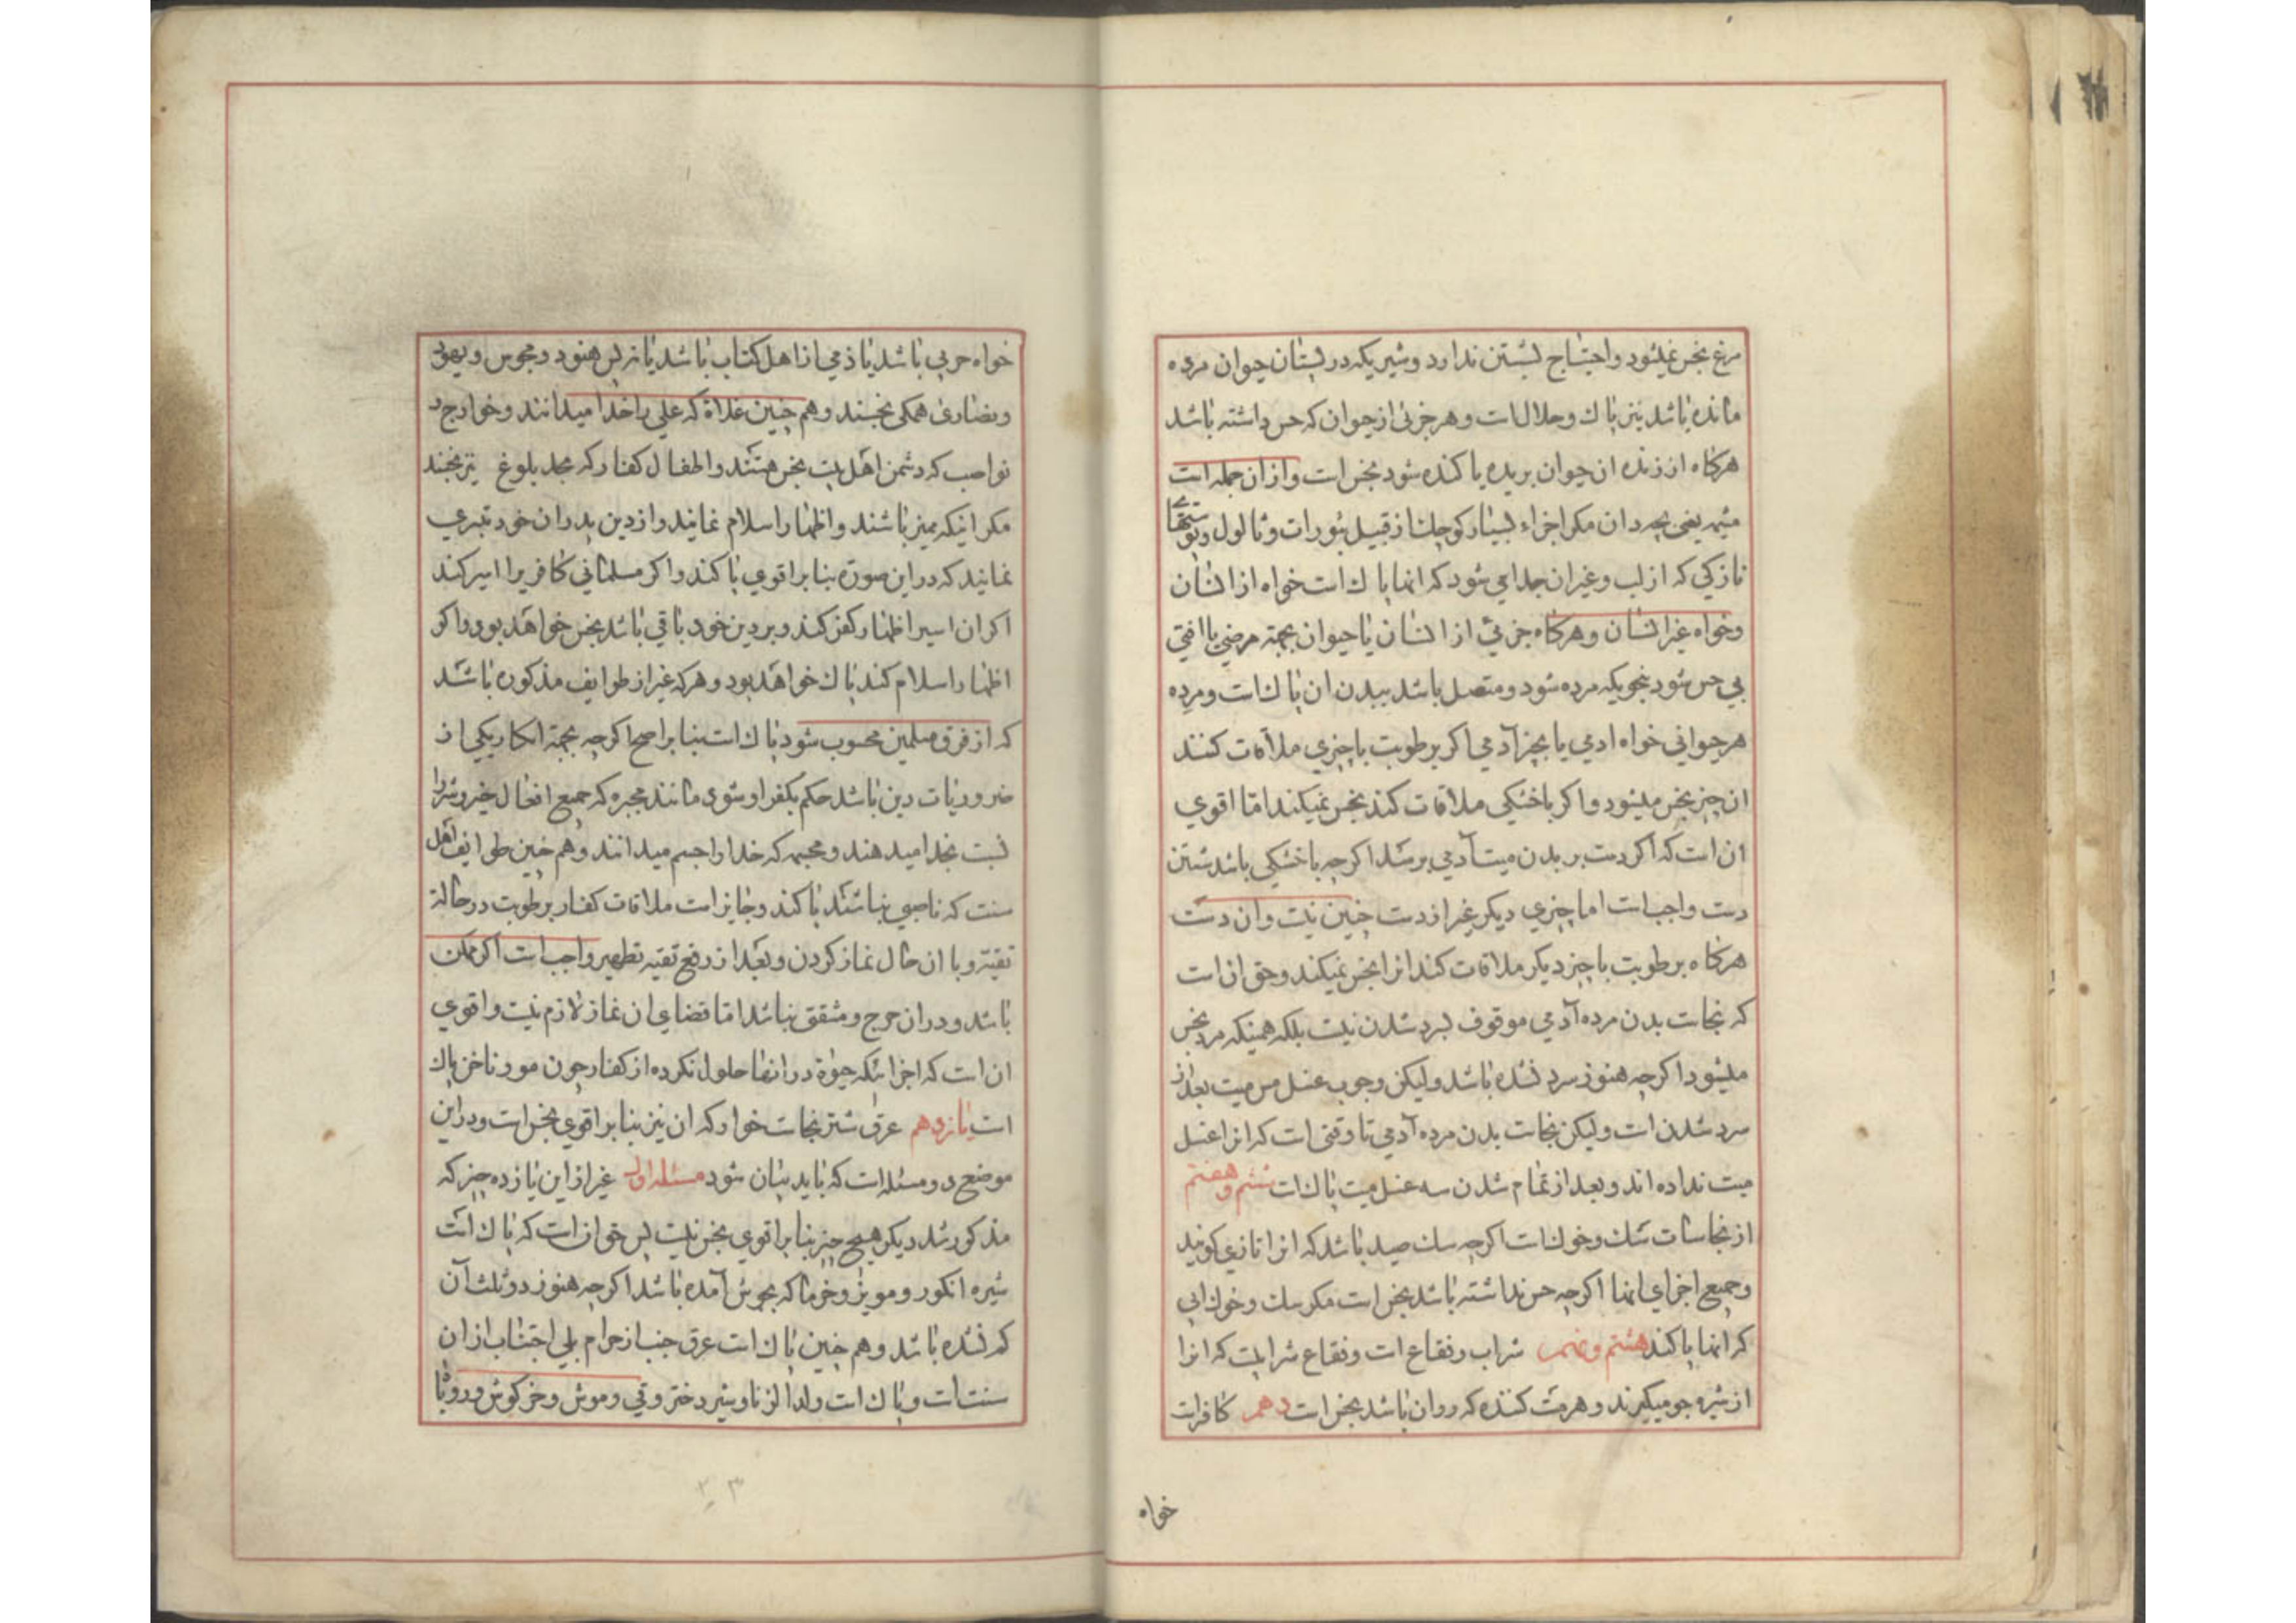 مرغ نجس نمیشود واحتیاج بشستن ندارد وشیریکه در پستان حیوان مرده
مانده باشد نیز پاک وحلالست وهر جزئی از حیوان که حس داشته باشد
هرکاه از زنده ان حیوان بریده یا کنده شود نجس است وازان جمله است
مشیمه یعنی بچه دان مکر اجزاء بسیار کوچک از قبیل بثورات وثالول وپوستهای
نازکی که از لب وغیر ان جدا می شود که انها پاک است خواه از انسان
وخواه غیر انسان وهرکاه جزئی از انسان یا حیوان بجهة مرضی یا افتی
بی حس شود بنحویکه مرده شود ومتصل باشد ببدن ان پاک است ومرده
هر حیوانی خواه ادمی یا بجز آدمی اکر برطوبت با چیزی ملاقات کنند
ان چیز نجس میشود واکر باخشکی ملاقات کند نجس نمیکند اما اقوی
ان است که اکر دست بر بدن میت آدمی برسد اکرچه باخشکی باشد شستن
دست واجب است اما چیزی دیکر غیر از دست چنین نیت وان دست
هرکاه برطوبت با چیز دیکر ملاقات کند انرا نجس نمیکند وحق ان است
که نجاست بدن مرده آدمی موقوف بسرد شدن نیست بلکه همینکه مرد نجس
میشود اکرچه هنوز سرد نشده باشد ولیکن وجوب غسل مس میت بعد از
سرد شدن است ولیکن نجاست بدن مرده آدمی تا وقتی است که انرا غسل
میت نداده اند وبعد از تمام شدن سه غسل میت پاک است ششم وهفتم
از نجاسات سک وخوک است اکرچه سک صید باشد که انرا تازی کویند
وجمیع اجزای انها اکرچه حس نداشته باشد نجس است مکر سک وخوک ابی
که انها پاکند هشتم ونهم شراب وفقاع است وفقاع شرابیست که انرا
از شیره جو میکیرند وهر مست کننده که روان باشد نجس است دهم کافرست
خواه
خواه حربی باشد یا ذمی از اهل کتاب باشد یا نه پس هنود ومجوس ویهود
ونصاری همکی نجسند وهم چنین غلاة که علی را خدا میدانند وخوارج و
نواصب که دشمن اهل بیت نجس هستند واطفال کفار که بحد بلوغ نیز نجسند
مکر اینکه ممیز باشند واظهار اسلام نمایند واز دین پدران خود تبری
نمایند که در این صورة بنا بر اقوی پاکند واکر مسلمانی کافریرا اسیر کند
اکر ان اسیر اظهار کفر کند وبر دین خود باقی باشد نجس خواهد بود واکر
اظهار اسلام کند پاک خواهد بود وهرکه غیر از طوایف مذکوره باشد
که از فرق مسلمین محسوب شود پاک است بنا بر اصح اکرچه بجهة انکار یکی از
ضروریات دین باشد حکم بکفر او شود مانند مجبره که جمیع افعال خیر وشر را
نسبت بخدا میدهند ومجسمه که خدا را جسم میدانند وهم چنین طوایف اهل
سنت که ناصبی نباشند پاکند وجایز است ملاقات کفار برطوبت در حالة
تقیة وبا ان حال نماز کردن وبعد از رفع تقیه تطهیر واجب است اکر ممکن
باشد ودر ان حرج ومشقق نباشد اما قضای ان نماز لازم نیت واقوی
ان است که اجزائیکه حیوة در انها حلول نکرده از کفار چون مو وناخن پاک
است یازدهم عرق شتر نجاست خوار که ان نیز بنا بر اقوی نجس است ودر این
موضع دو مسئله است که باید بیان شود مسئله اول غیر از این یازده چیز که
مذکور شد دیکر هیچ چیز بنا بر اقوی نجس نیست پس حق ان است که پاک است
شیره انکور ومویز وخرما که بجوش آمده باشد اکرچه هنوز دو ثلث آن
کم نشده باشد وهم چنین پاک است عرق جنب از حرام بلی اجتناب از ان
سنت است وپاک است ولد الزنا وشیر دختر وقی وموش وخرکوش وروباه
۲۳